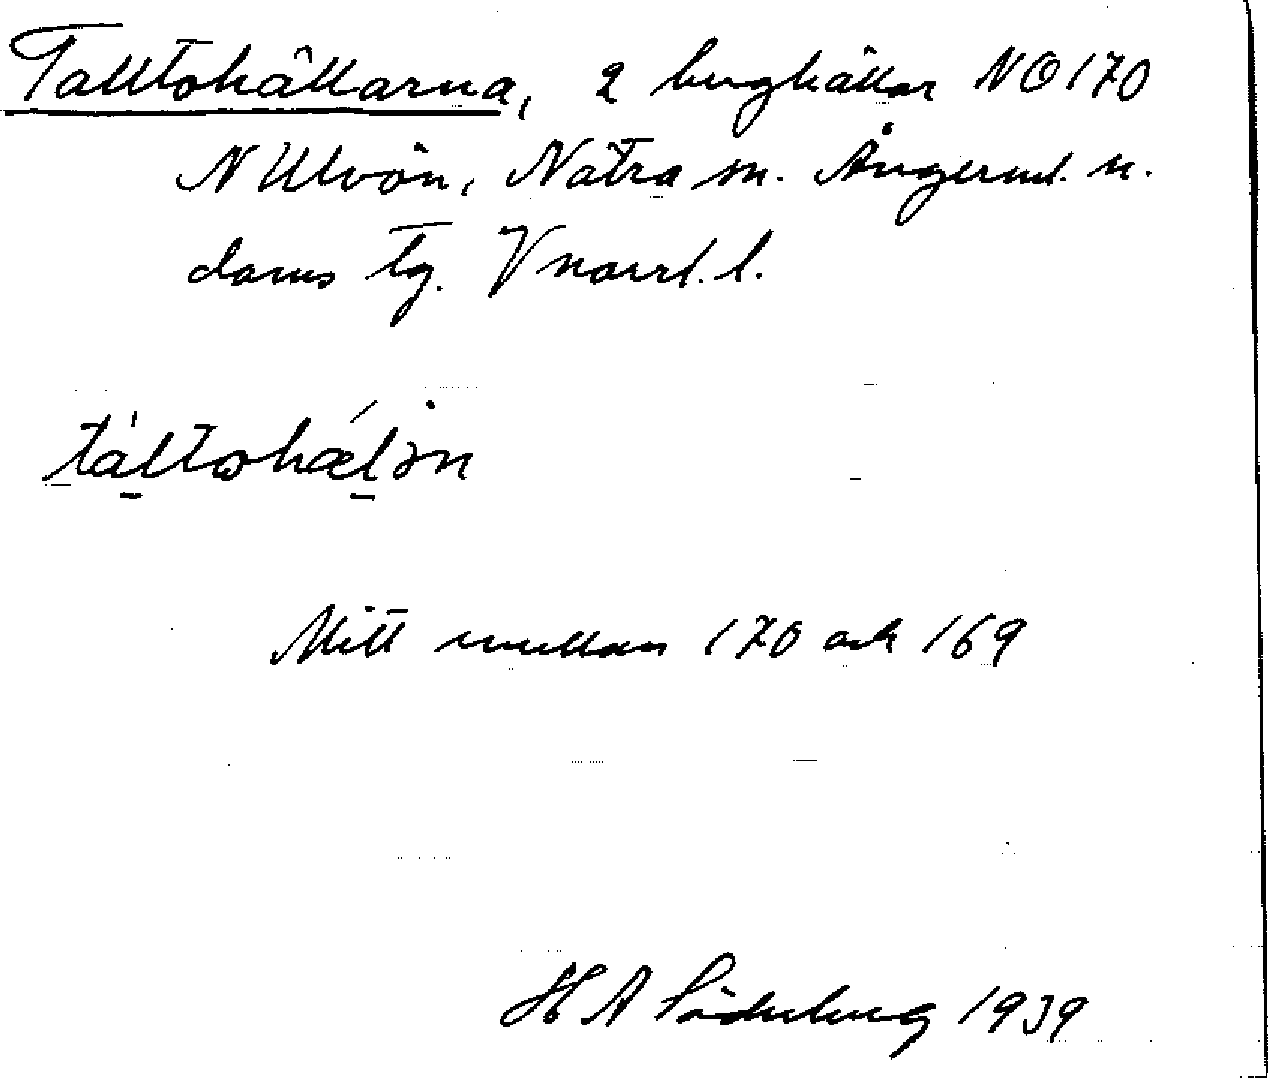 Talltohällarna, 2 berghällar NO 170
N Ulvön, Nätra sn. Ångerml. n.
doms tg. Vnorrl. l.
táltohæ̀lən
Mitt emellan 170 och 169
H A Söderberg 1939